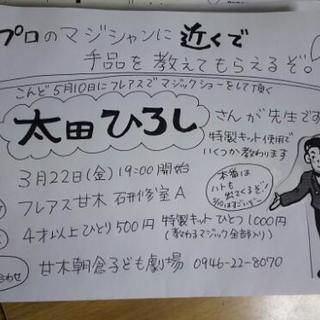 プロのマジシャンに近くで
手品を教えてもらえるぞ!
こんど5月10日にフレアスでマジックショーをして頂く
太田ひろし
さんが先生です
特製キット使用で
いくつか教わります
3月22日(金)19:00開始
フレアス甘木 研修室A
4才以上ひとり500円 特製キットひとつ1000円
(教わるマジック全部入り)
本番は
ハトも
出てくるぞ!
合わせ
甘木朝倉子ども劇場 0946-22-8070